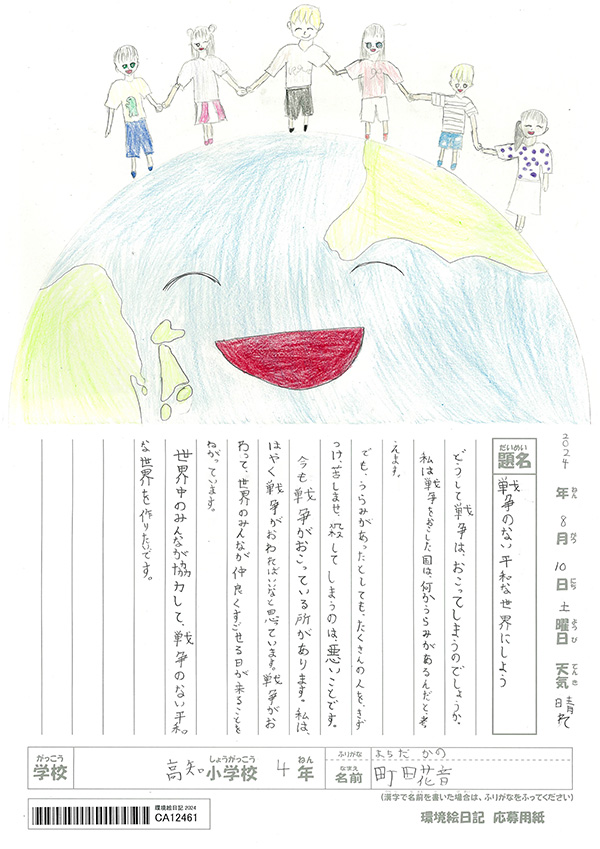 2024年ねん 8月がつ 10日にち 土曜日ようび 天気てんき 晴れ
だいめい
題名
戦争のない平和な世界にしよう
どうして戦争は、おこってしまうのでしょうか。
私は戦争をおこした国は、何かうらみがあるんだと考
えます。
でも、うらみがあったとしても、たくさんの人を、きず
つけ、苦しませ、殺してしまうのは、悪いことです。
今も戦争がおこっている所があります。私は、
はやく戦争がおわればいいなと思っています。戦争がお
わって、世界のみんなが仲良くすごせる日が来ることを
ねがっています。
世界中のみんなが協力して、戦争のない平和
な世界を作りたいです。
がっこう
学校
高知小学校しょうがっこう 4年ねん
ふりがな
まちだ かの
なまえ
名前
町田花音
(漢字で名前を書いた場合は、ふりがなをふってください)
環境絵日記 2024
CA12461
環境絵日記 応募用紙